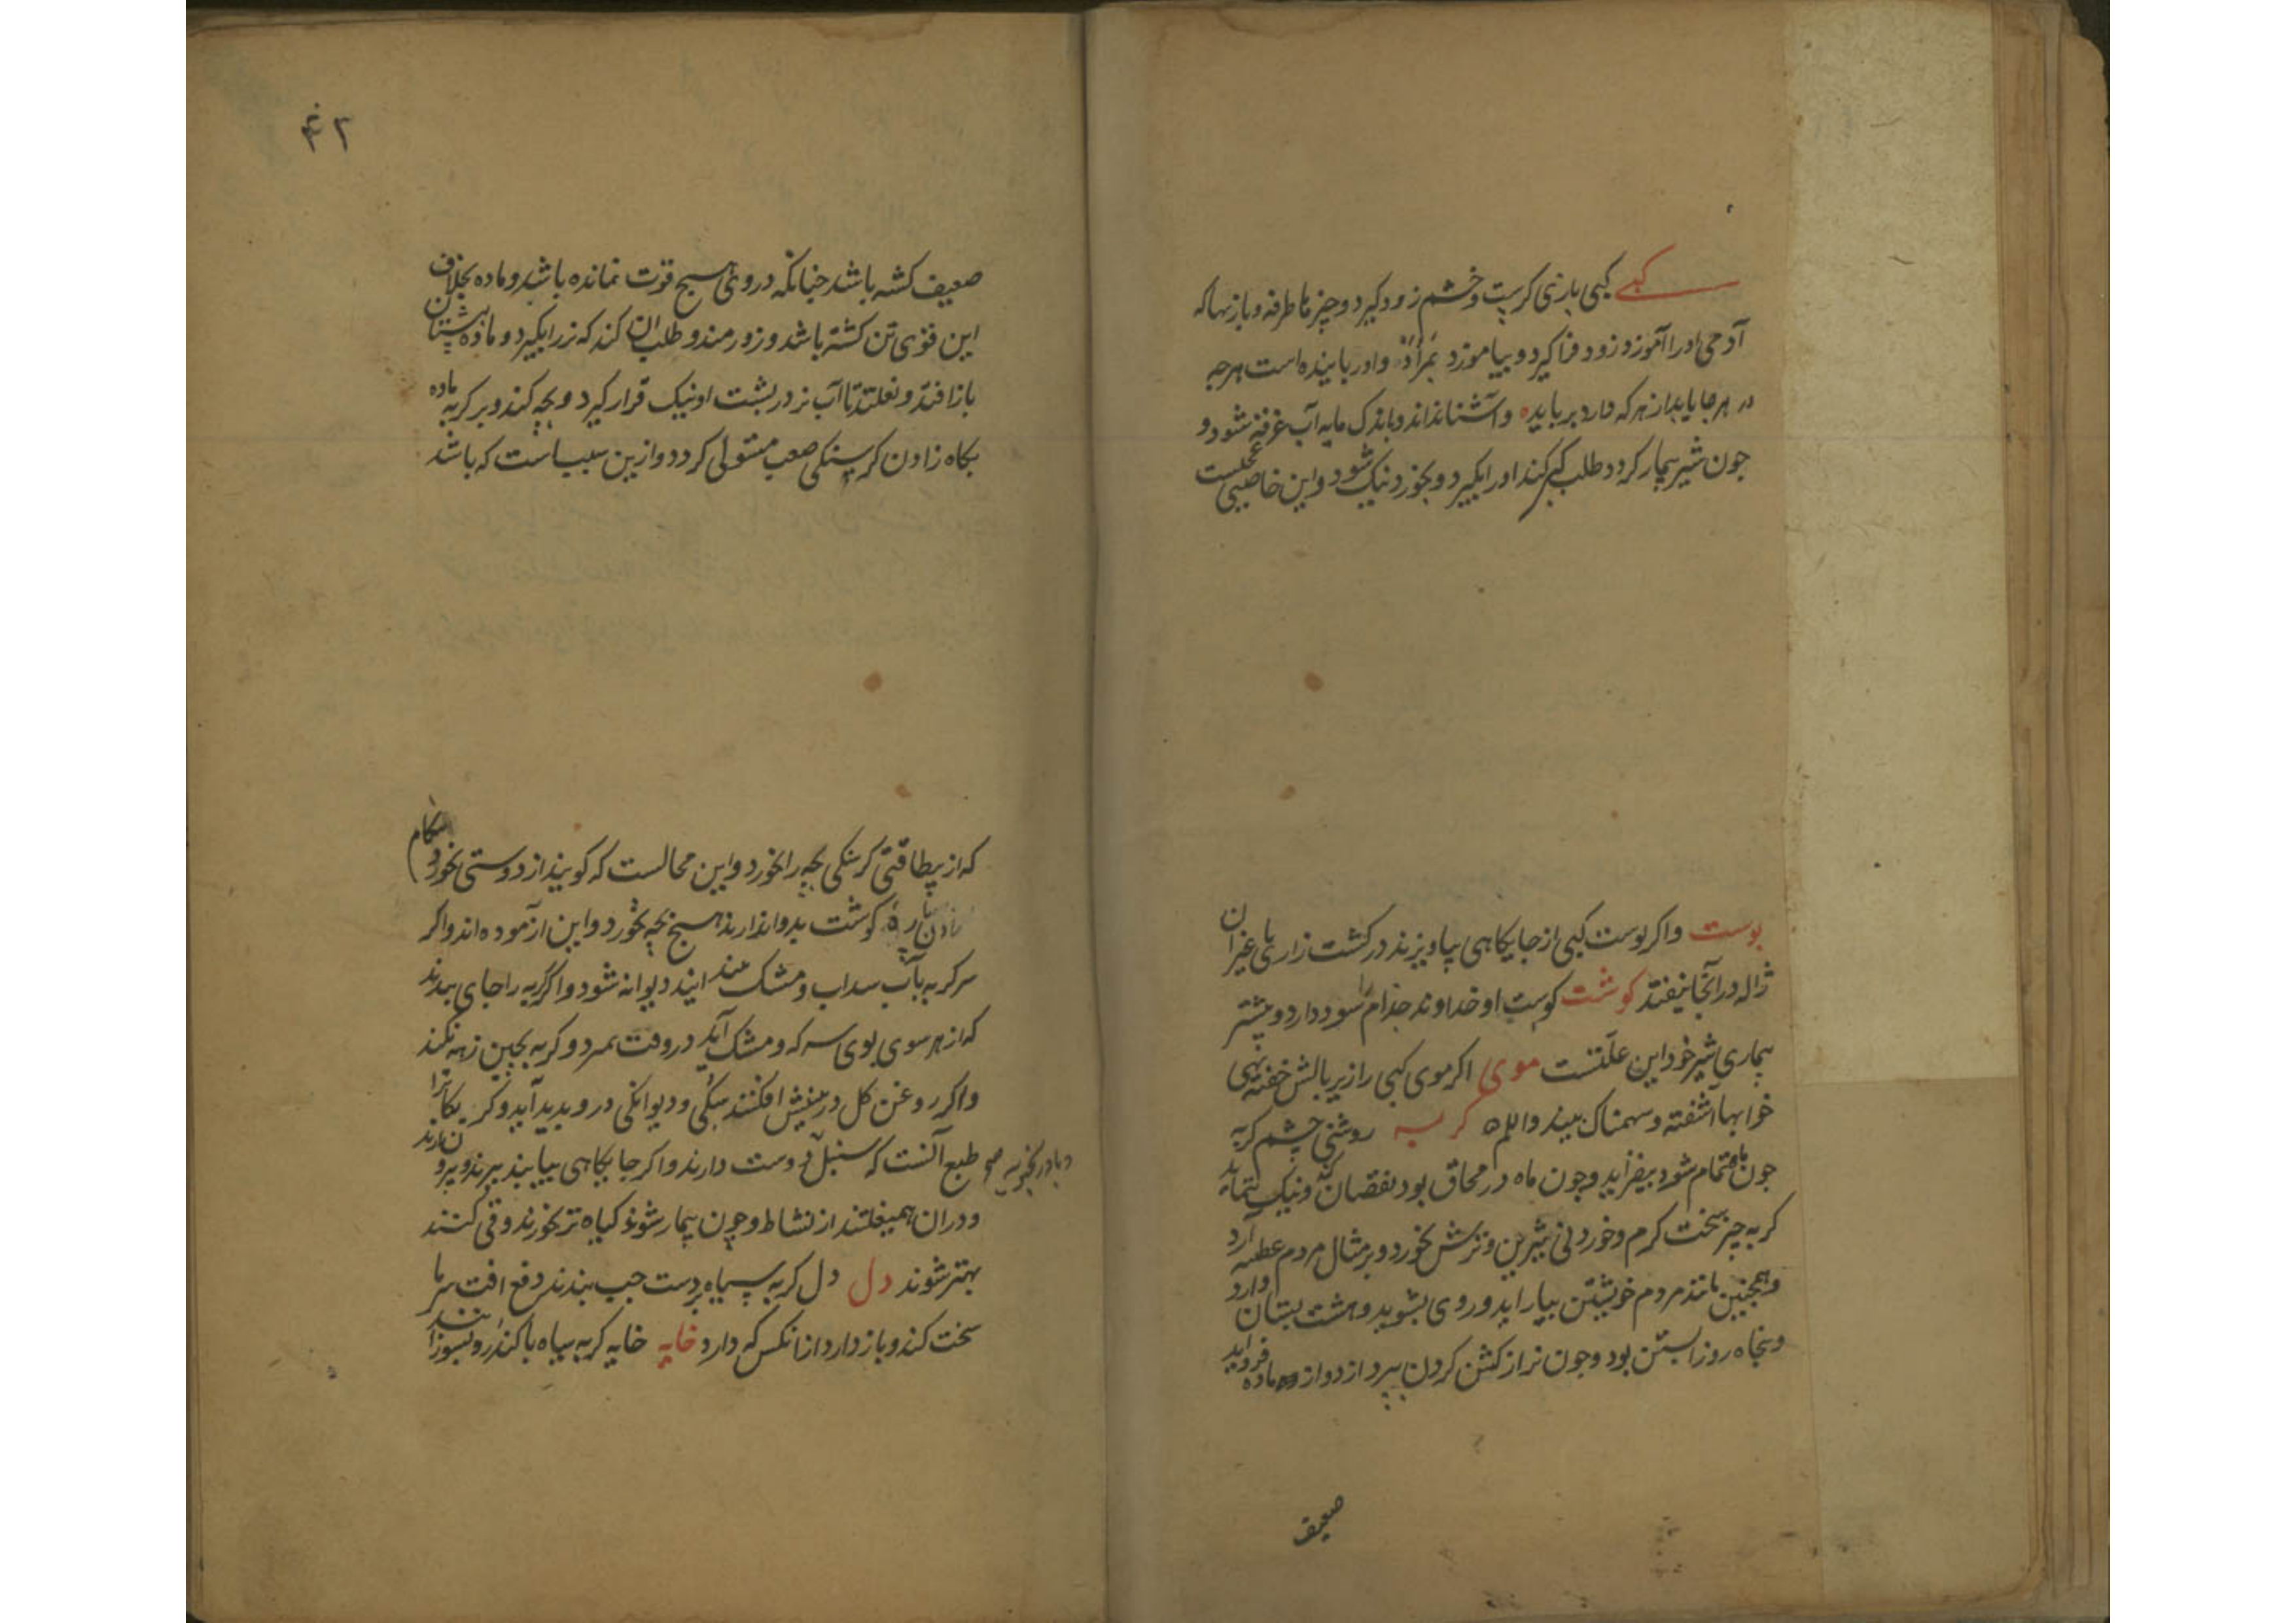 کپی کپی بازی کرست و خشم زود کیرد و چیزها طرفه و بازیها که
آدمی او را آموزد زود فرا کیرد و بیاموزد و او رباینده است هرچه
در هر جا یابد از هر که دارد برباید و آشنا نداند و باندک مایه آب غرقه شود و
جون شیر بیمار کردد طلب کپی کند او را بکیرد و بخورد نیک شود و این خاصیتی عجبست
بوست واکر بوست کپی از جایکاهی بیاویزند در کشت زار یا غیر آن
ژاله در آنجا نیفتد کوشت کوشت او خداوند جذام را سود دارد و بیشتر
بیماری شیر خود این علتست موی اکر موی کپی را زیر بالش خفته نهی
خوابها آشفته و سهمناک بیند والله کربه روشنی چشم کربه
جون ماه تمام شود بیفزاید وجون ماه در محاق بود نقصان کند و نیک
کربه چیز سخت کرم و خوردنی شیرین و ترش نخورد و بر مثال مردم عطسه آرد
و همچنین مانند مردم خویشتن بیاراید و روی بشوید و هشت بستان دارد
و پنجاه روز آبستن بود وجون نر از کشن کردن ببردازد و از ماده فرو آید
ضعیف
۴۲
ضعیف کشته باشد جنانکه در وی هیچ قوت نمانده باشد و ماده بخلاف
این قوی تن کشته باشد و زورمند و طلب آن کند که نر را بکیرد و ماده بپشتان
باز افتد و نغلتد تا آب نر در بشت او نیک قرار کیرد و بچه کند و بر کربه ماده
بکاه زادن کرسنکی صعب مستولی کردد و ازین سببست که باشد
که از بیطاقتی کرسنکی بچه را بخورد و این محالست که کویند از دوستی بخورد
زادن پاره کوشت بدو اندازند هیچ بچه نخورد و این آزموده اند واکر
سر کربه بآب سداب و مشک دیوانه شود واکر کربه را جای ببندند
که از هر سوی بوی سرکه و مشک آید در وقت بمرد و کربه بچین زهه نکند
واکر روغن کل در بینیش افکنند سکی و دیوانکی در و بدید آید و کربکانرا
طبع آنست که سنبل دوست دارند واکر جایکاهی بیابند ببرند و برو
و دران همیغلتند از نشاط وجون بیمار شوند کیاه تر بخورند و قی کنند
بهتر شوند دل دل کربه سیاه بر دست جب بندند دفع آفت سرما
سخت کند و باز دارد از آنکس که دارد خایه خایه کربه سیاه با کندر و بسوزانند